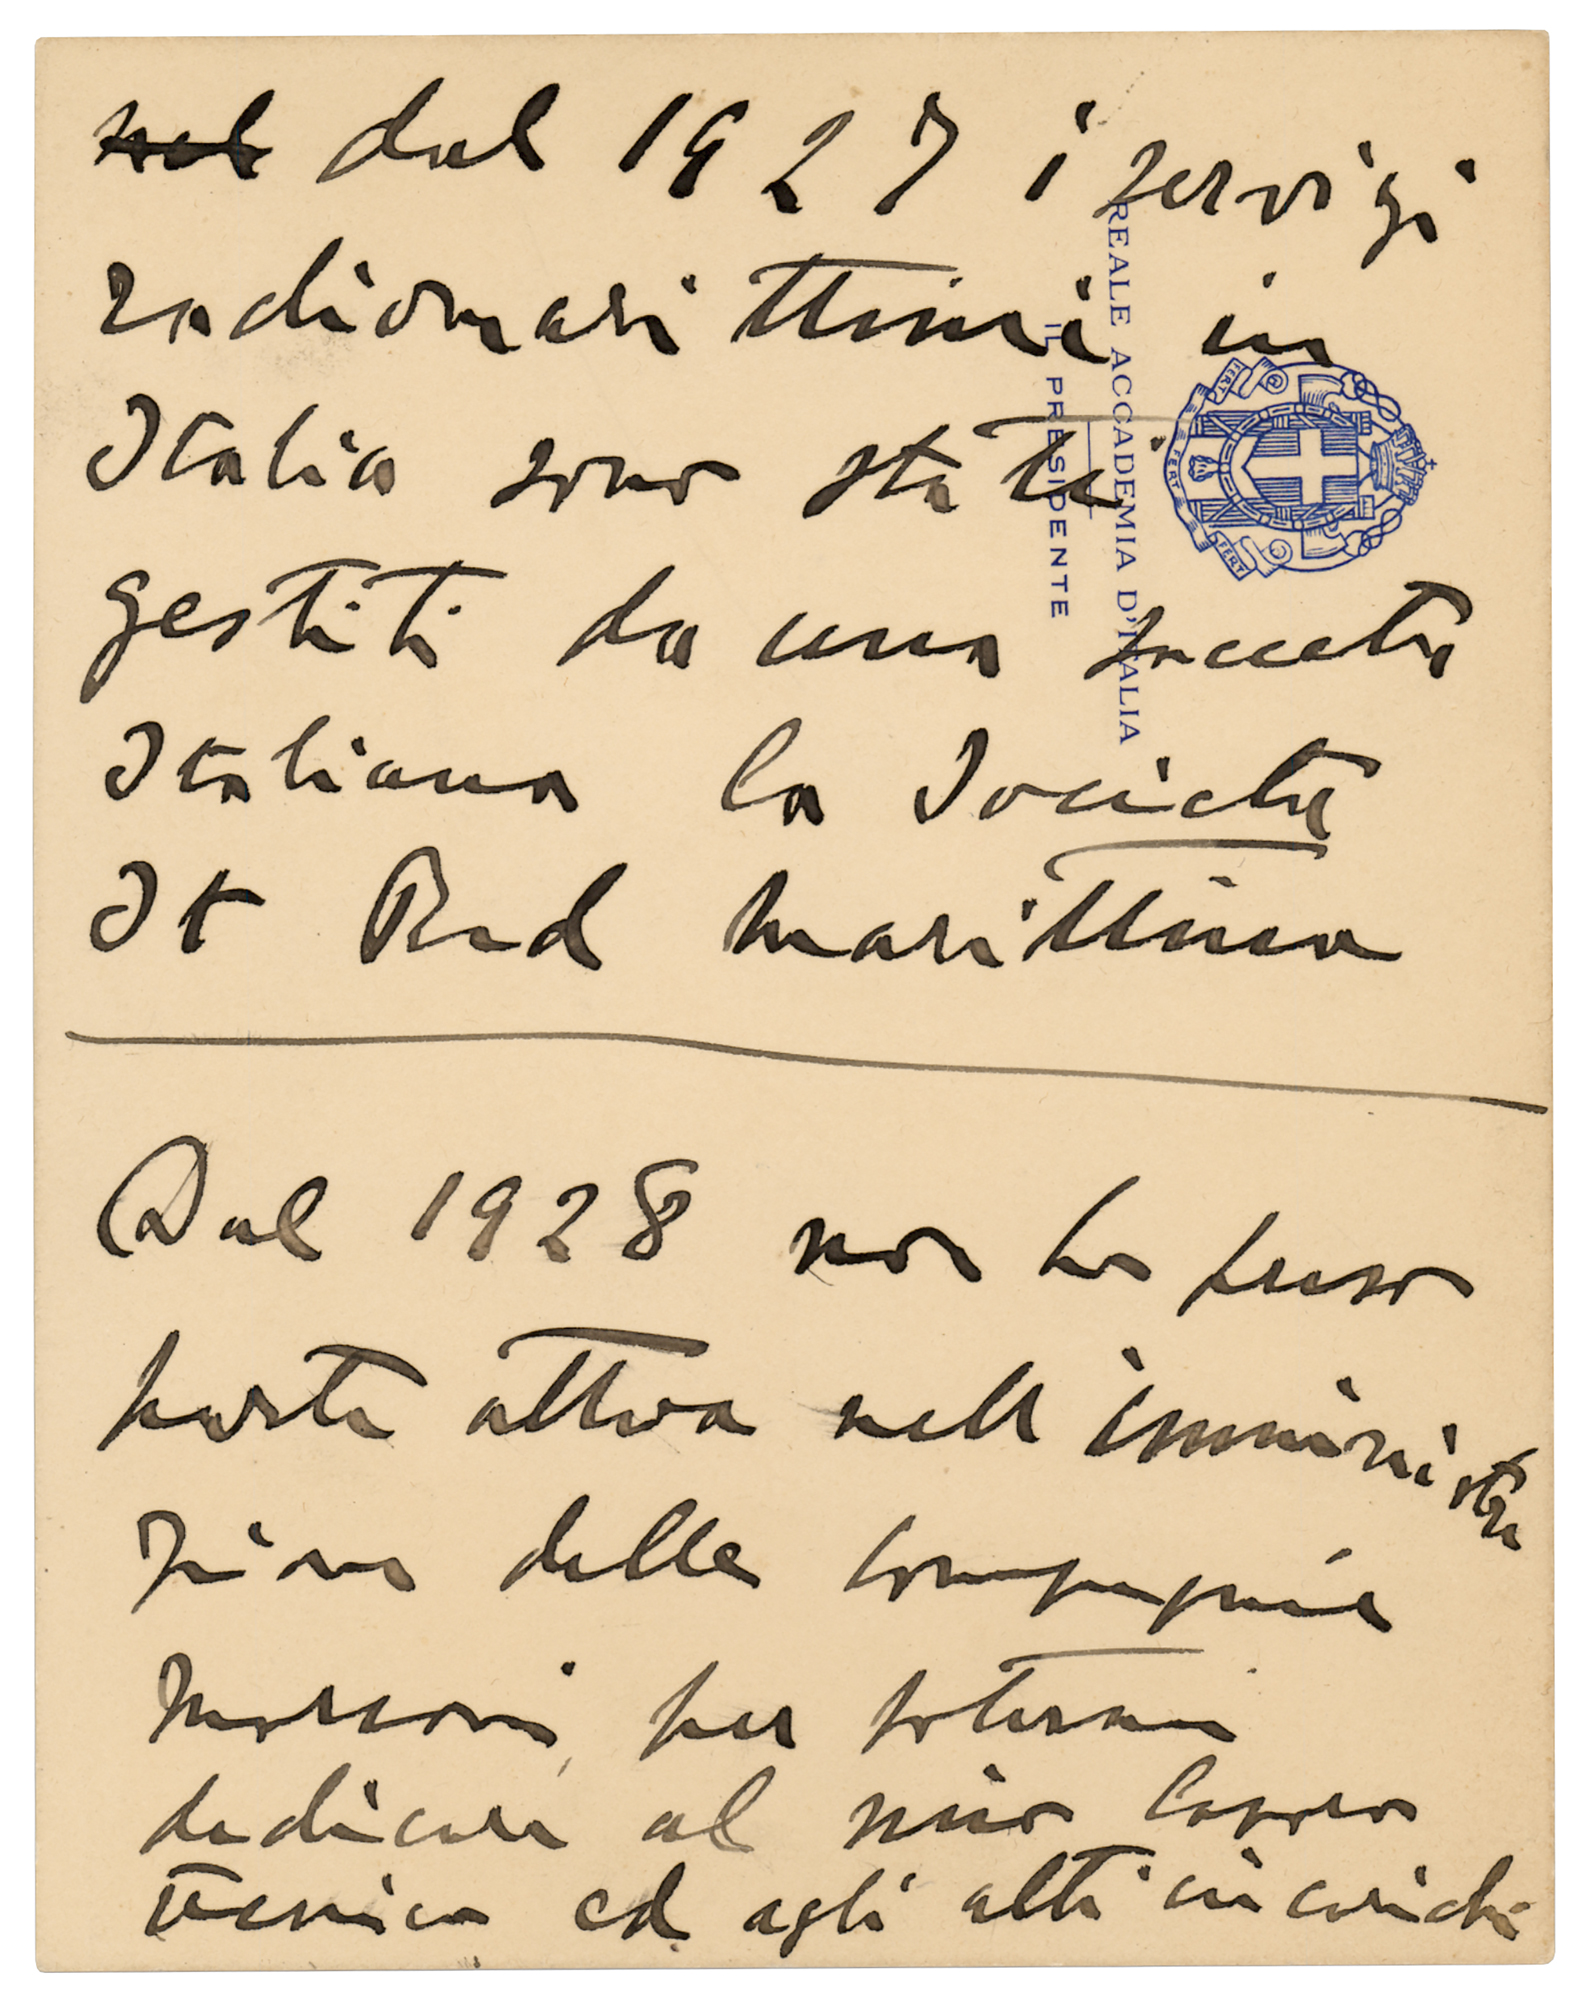 nel dal 1927 i servizi
radiomarittimi in
Italia sono stati
gestiti da una società
Italiana la Società
It Rad Marittima
Dal 1928 non ho preso
parte attiva nell
zione delle compagnie
Marconi, per potermi
dedicare al mio lavoro
tecnico ed agli alti incarichi
REALE ACCADEMIA D'ITALIA
IL PRESIDENTE
FERT
FERT
FERT